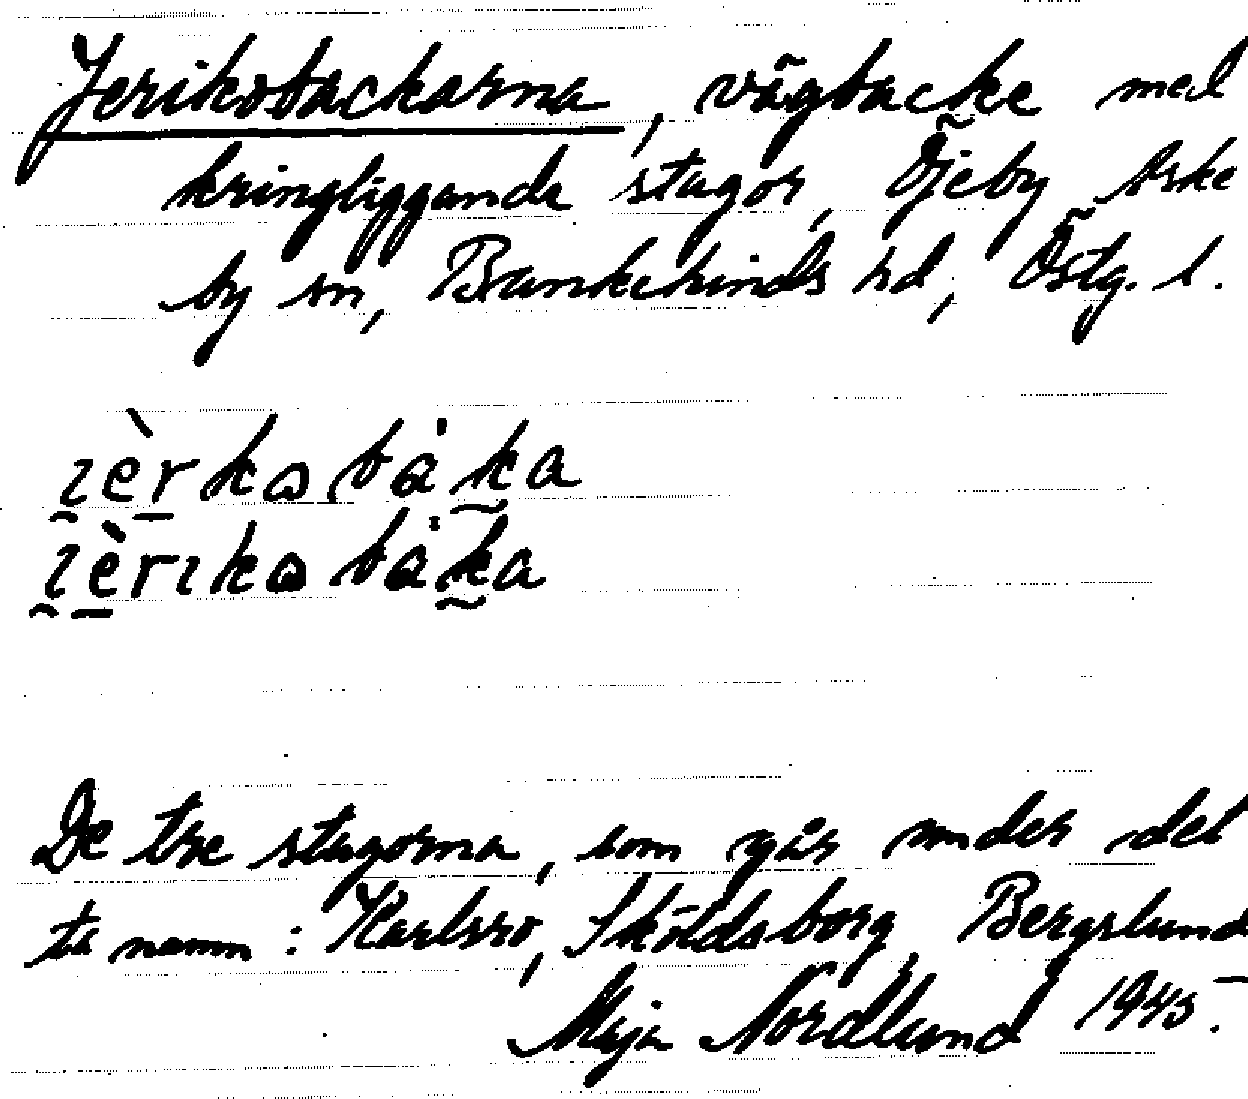 Jerikobackarna, vägbacke med
kringliggande stugor, Öjeby, Aske
by sn, Bankekinds hd, Östg. l.
De tre stugorna, som går under det
ta namn: Karlsro, Sköldsborg, Bergslund
Maja Nordlund 1945.